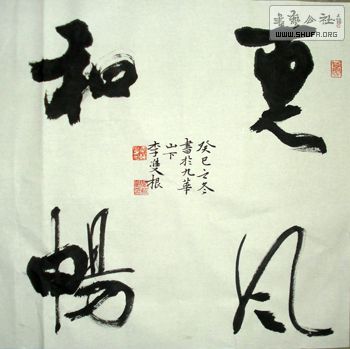 惠风
和暢
癸巳之冬
書於九華
山下
李雙根
书艺公社
WWW.SHUFA.ORG